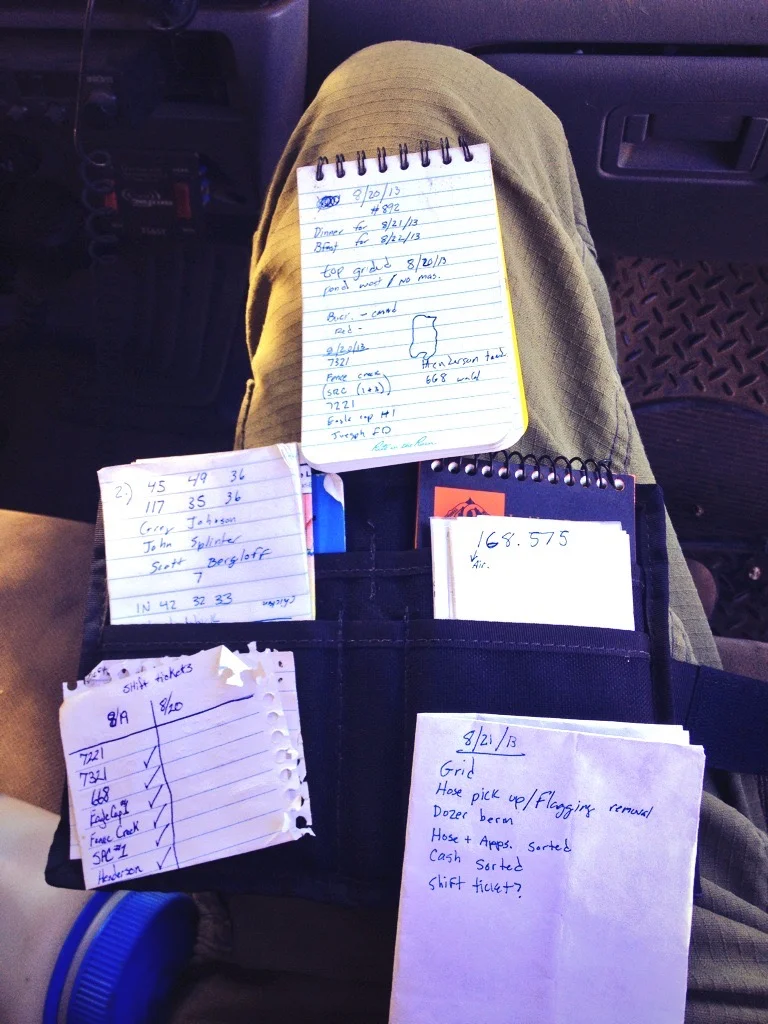 8/20/13
#892
Dinner for 8/21/13
Bfast for 8/22/13
top grided 8/20/13
pond west / No mas.
Red -
8/20/13
7321
Fence creek
(SRC (1+2)
7221
Eagle cap #1
Joseph FD
Henderson
668
2.) 45 49 36
117 35 36
Grey Johnson
John Splinter
Scott Bergloff
7
IN 42 32 33
168.575
Air.
shift tickets
8/19 8/20
7221 ✓
7321 ✓
668 ✓
EagleCap#1 ✓
Fence Creek ✓
SRC #1 ✓
Henderson ✓
8/21/13
Grid
Hose pick up/Flagging removal
Dozer berm
Hose + Apps. sorted
Cash sorted
shift ticket?